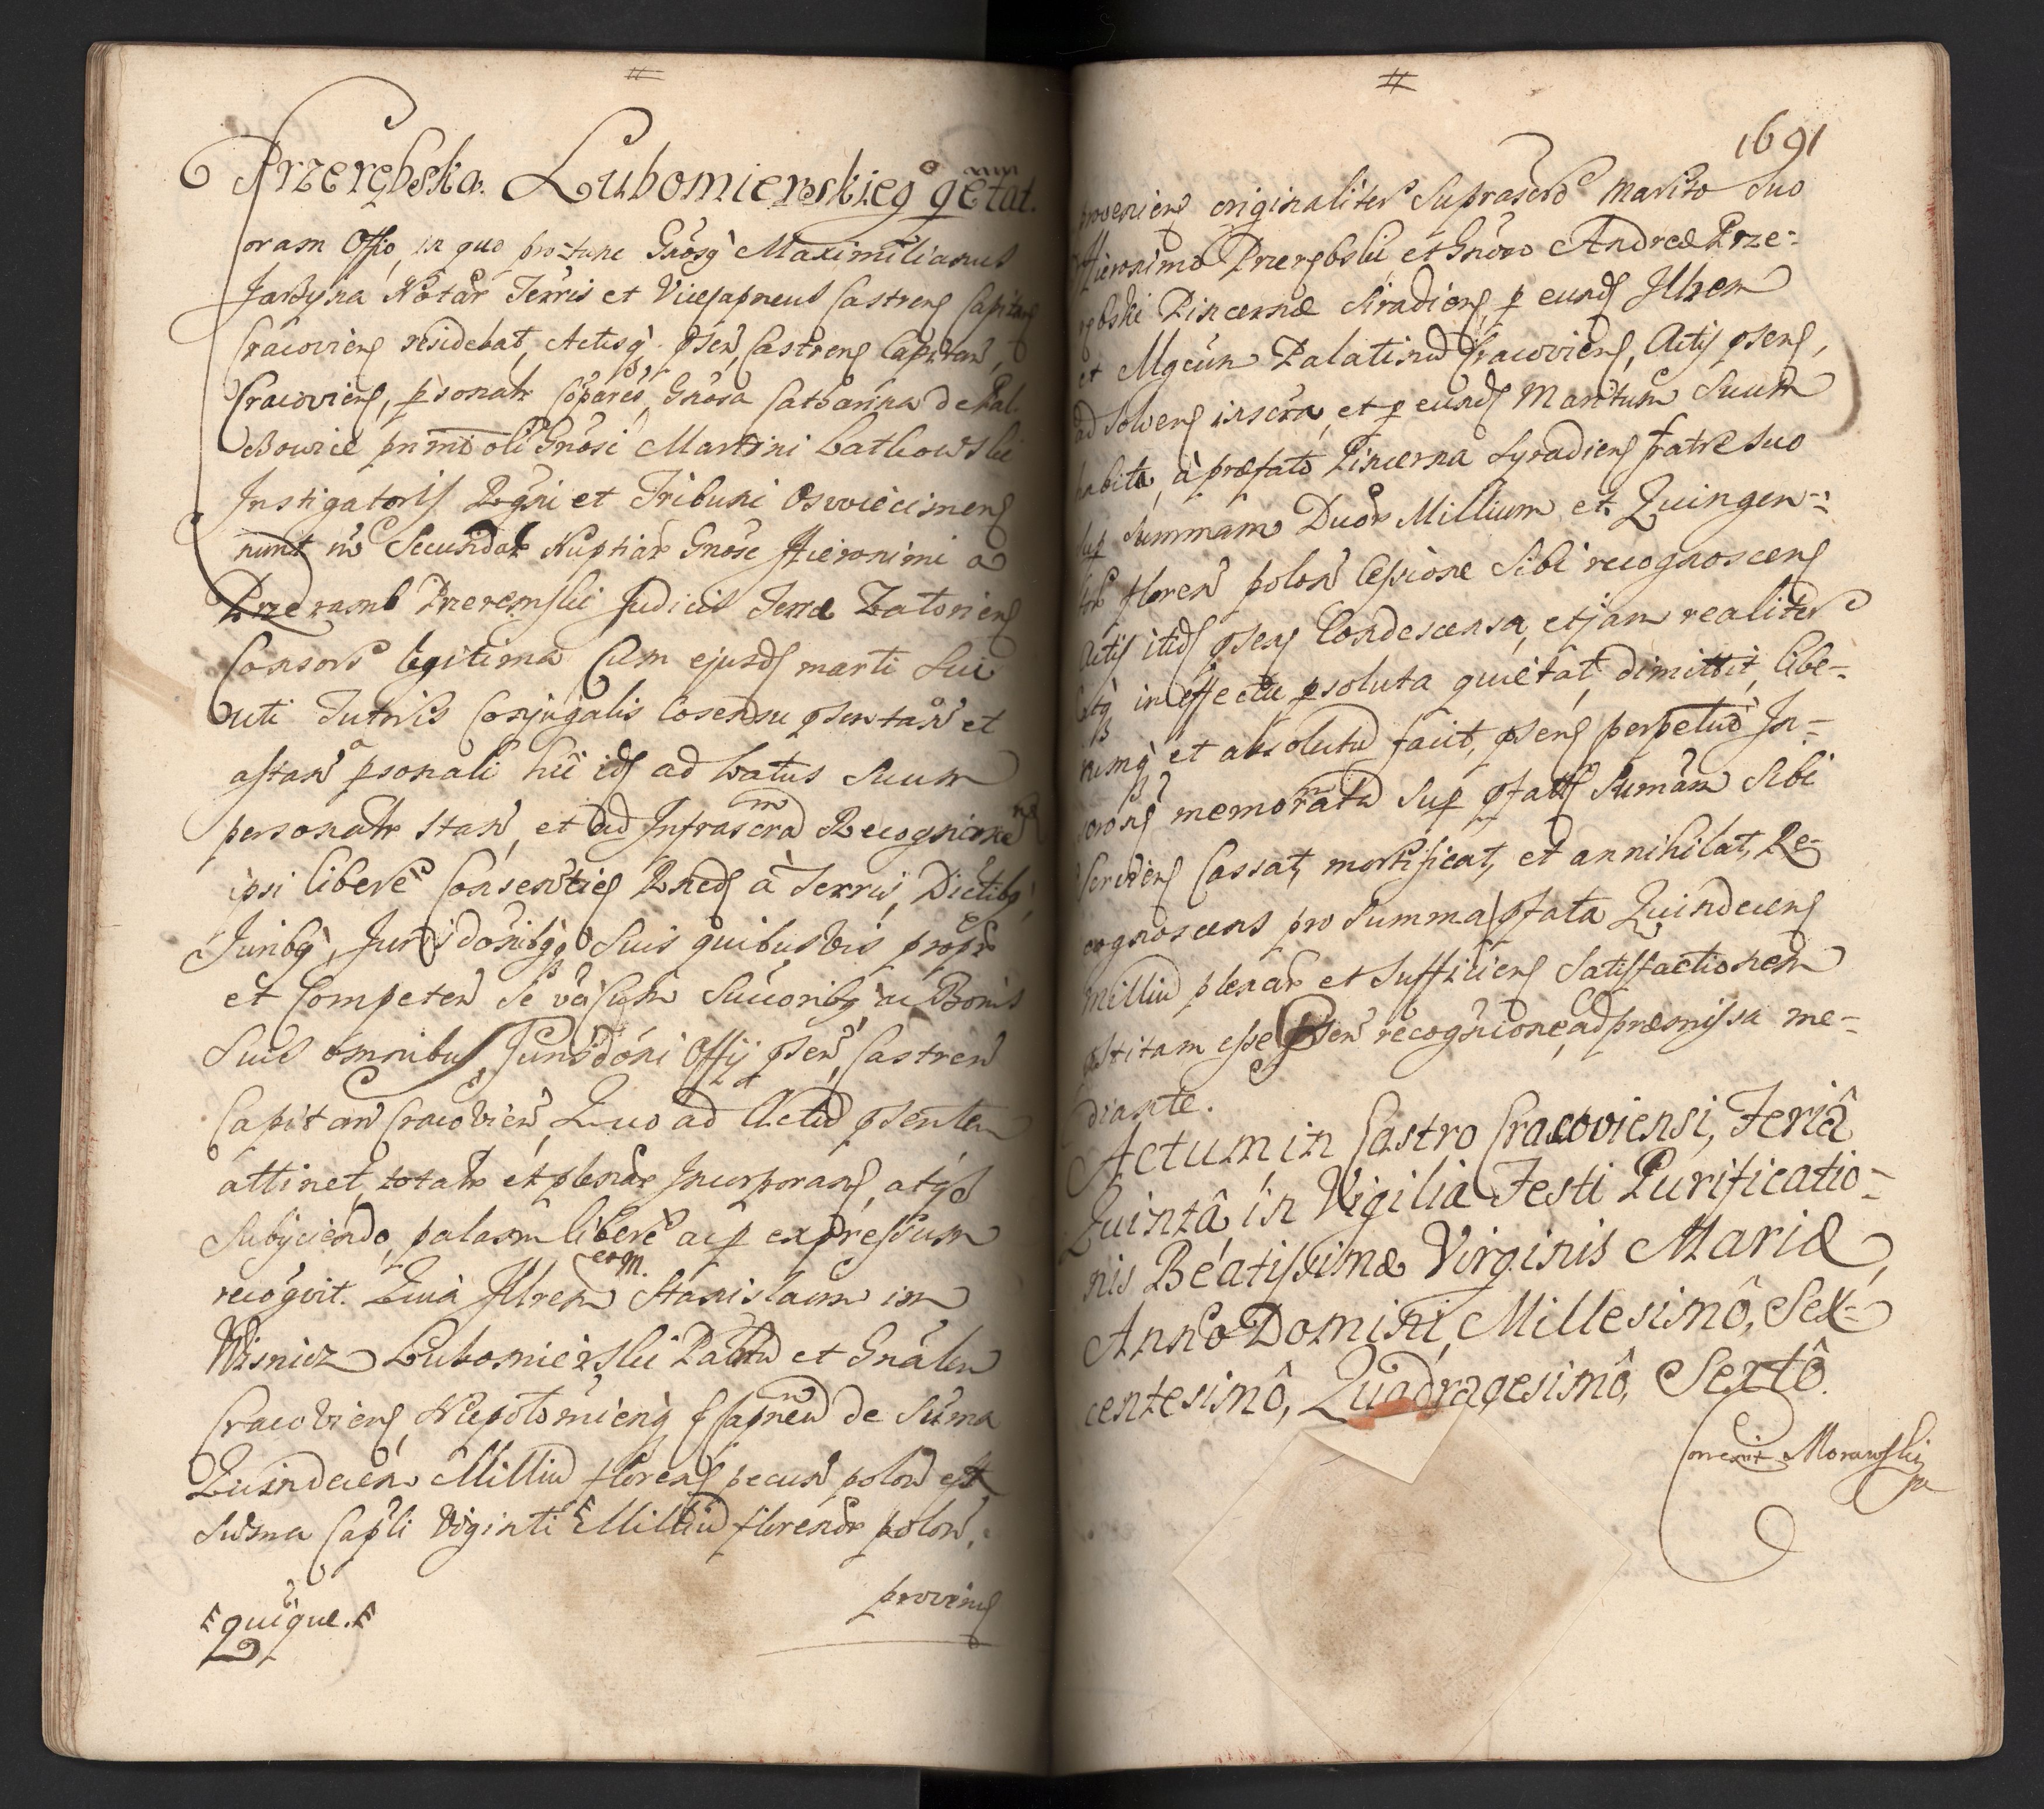 #
Przerębska. Lubomierskieg° qetat.
oram Offo, in quo pro tunc Gnosq Maximilianus
Jarzyna Notar Terris et Vicescapneus Castrens Capitan
Cracoviens residebat, Actisq psen Castrens Capitan,
Cracoviens, psonalr coparēs, Gnosa Catharina de Pal-
czowice primo oli Gnosi Martini Latkowski
Instigatoris Regni et Tribuni Osvviecimens
nunc vo Secundar Nuptiar Gnose Hieronimi a
Przeramb Przeremski Judicis Terræ Zatoriens
Consors legitima Cum ejusd marti sui
uti Tutoris Conjugalis cosensu psentan et
astan psonali hic ids ad latus suum
personalr stan, et ad Infrascra Recognione
ipsi libere Consentien Rneds à Terris, Dictibq,
Juribq, Jurisdonibqq Suis quibusvis propr
et Competen se va Cum Succoribq ac Bonis
Suis omnibus, Jurisdoni Offij psen, Castren
Capitan Cracovien, Quo ad Actu psentem
attinet, totalr et plenar Incorporans, atqs
Subijciendo, palam libere ac p expressum
recogvit. Quia Illrem Stanislaum in
eom.
Wisnicz Lubomierski Palatu et Gnalem
Cracoviens, Niepolomienq Capneu de Suma
Quindecem Milliu florens pecun polon est
Suma Capli Viginti Milliu florenor polon,
quique.
proviens
#
1691
proveniens originaliter Suprascro marito suo
Hieronimo Przerębski et Gnoso Andreæ Prze-
rębski Pincernæ Siradiens, p eunds Illrem
et Mgcum Palatinu Cracoviens, Actis psens,
ad solvens inscra, et p eunds Maritum Suum
habita, à præfato Pincerna Syradiens fratre suo
sup Summam Duor Millium et Quingen-
tor floren polon Cessione Sibi recognoscens
Actis itids psens Condescensa, etjam realiter
atq in effectu psoluta quietat, dimittit, libe-
rumq et absolutu facit, psens perpetuo In-
scrons memorata sup pfats Sumam Sibi
servien Cassat, mortificat, et annihilat, Re-
cognoscens pro Summa pfata Quindecens
Milliu plenar et sufficiens Satisfactionem
pstitam esse psen recognione, ad præmissa me-
diante.
Actum in Castro Cracoviensi, Feriâ
Quintâ in Vigilia Festi Purificatio-
nis Beatissimæ Virginis Mariæ,
Anno Domini, Millesimô, Sex-
centesimô, Quadragesimô, Sextô.
Correxit Morawski